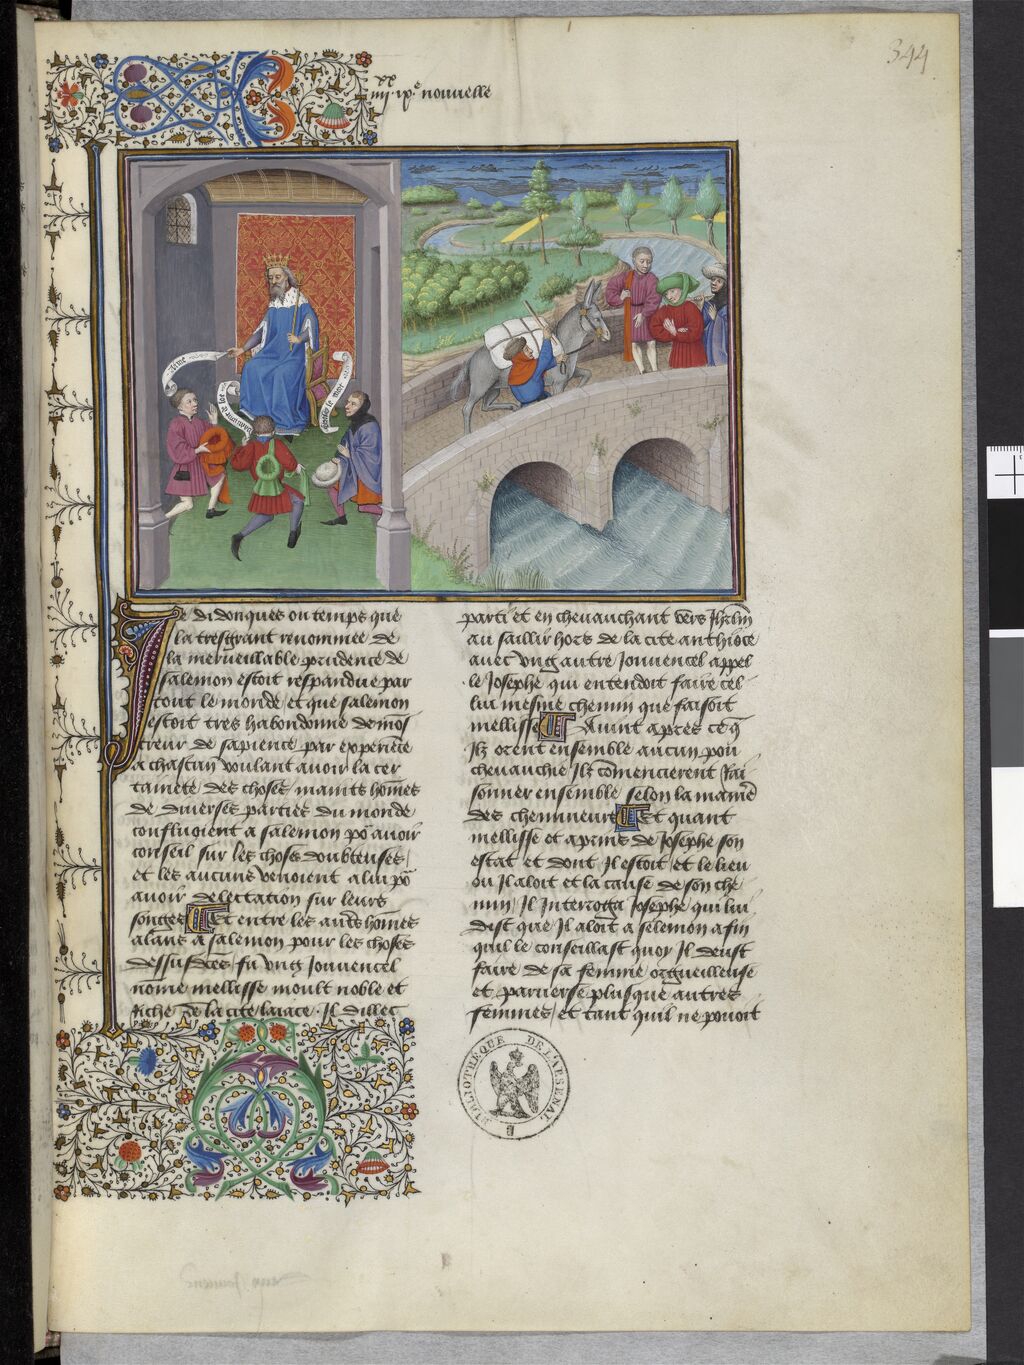 344
iiii. ixe nouvelle
Aime
le mort
Je di donques ou temps que
la tresgrant renommee de
la merveillable prudence de
salemon estoit respandue par
tout le monde et que salemon
estoit tres habondonne demos
treur de sapience par experiẽce
a chascun voulant avoir la cer
tainete des choses / maints hom̃es
de diverses parties du monde
confluoient a salemon po᷑ avoir
conseil sur les choses doubteuses /
et les aucuns venoient a lui po᷑
avoir delectation sur leurs
songes Et entre les aut̃s hom̃es
alans a salemon pour les choses
dessusd̃ces / fu vng Jouvencel
nom̃e mellisse moult noble et
riche de la cite laiace. Il dillec
parti et en chevauchant vers Jhr̃lm
au saillir hors de la cite anthioce
avec vng autre Jouvencel appel
le Josephe qui entendoit faire cel
lui mesme chemin que faisoit
mellisse Avint apres ce q̃
Ilz orent ensemble aucun pou
chevauchie Ilz com̃encierent Rai
sonner ensemble selon la manie᷑
des chemineurs Et quant
mellisse et aprins de Josephe son
estat et dont Il estoit et le lieu
ou Il aloit et la cause de son che
min / Il Interroga Josephe qui lui
dist que Il aloit a selemon afin
quil le conseillast quoy Il deust
faire de sa femme orgueilleuse
et parverse plusque autres
femmes / et tant quil ne povoit
BIBLIOTHÈQUE DE L'ARSENAL